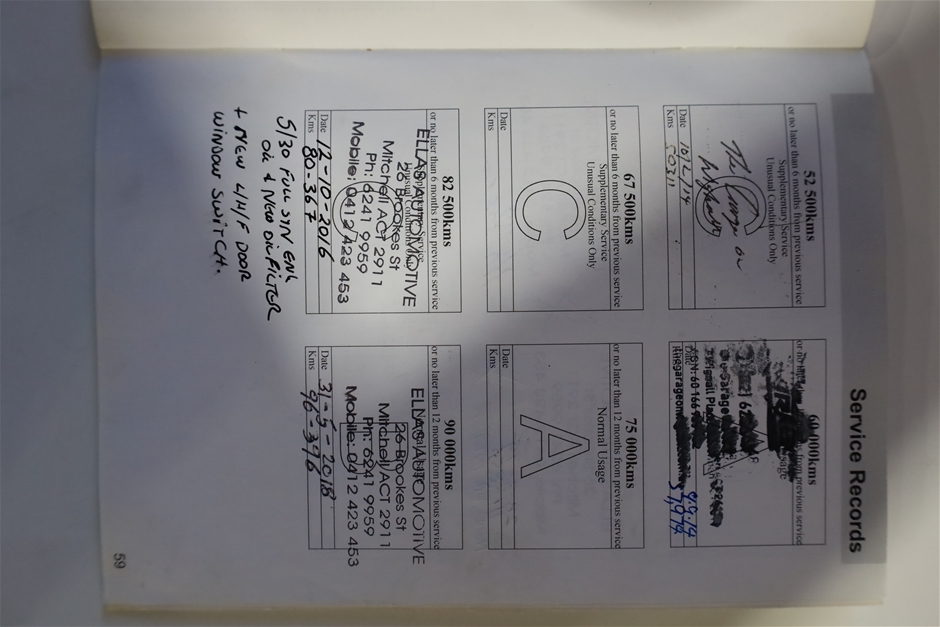 Service Records
52 500kms
or no later than 6 months from previous service
Supplementary Service
Unusual Conditions Only
The Garage on
Date
Kms
60 000kms
or no
months from previous service
Garage
57,974
67 500kms
or no later than 6 months from previous service
Supplementary Service
Unusual Conditions Only
C
Date
Kms
75 000kms
or no later than 12 months from previous service
Normal Usage
A
Date
Kms
82 500kms
or no later than 6 months from previous service
Unusual Conditions
ELLAS AUTOMOTIVE
26 Brookes St
Mitchell ACT 2911
Ph: 6241 9959
Mobile: 0412 423 453
Date 12-10-2016
Kms 80-367
5/30 FULL SYN ENG
OIL & NEW OIL FILTER
+ NEW L/H/F DOOR
WINDOW SWITCH.
90 000kms
or no later than 12 months from previous service
ELLAS AUTOMOTIVE
26 Brookes St
Mitchell ACT 2911
Ph: 6241 9959
Mobile: 0412 423 453
Date 31-5-2018
Kms 96-396
59